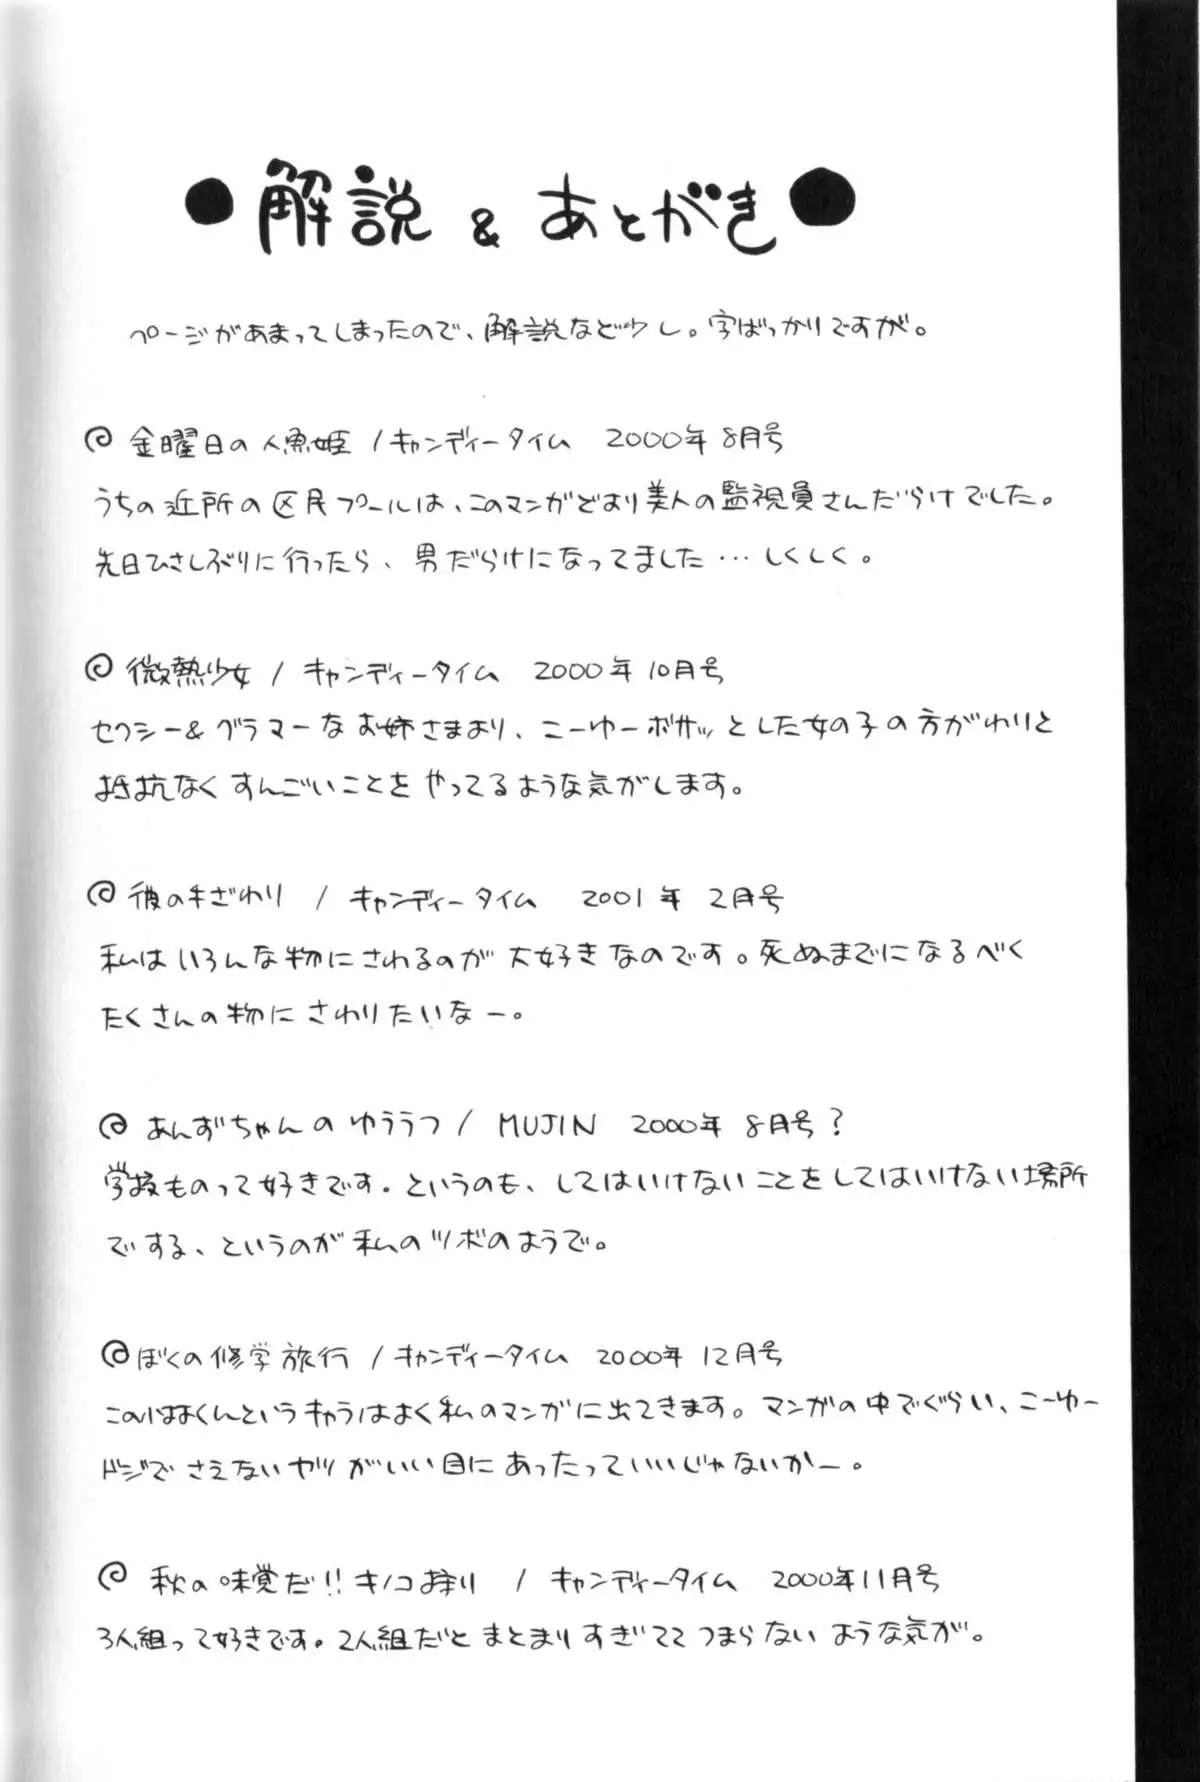 ●解説 & あとがき●
ページがあまってしまったので、解説など少し。字ばっかりですが。
金曜日の人魚姫 / キャンディータイム 2000年8月号
うちの近所の区民プールは、このマンガどおり美人の監視員さんだらけでした。
先日ひさしぶりに行ったら、男だらけになってました…しくしく。
微熱少女 / キャンディータイム 2000年10月号
セクシー&グラマーなお姉さまより、こーゆーボサッとした女の子の方がわりと
抵抗なくすんごいことをやってるような気がします。
彼の手ざわり / キャンディータイム 2001年 2月号
私はいろんな物にさわるのが大好きなのです。死ぬまでになるべく
たくさんの物にさわりたいなー。
あんずちゃんのゆううつ / MUJIN 2000年 8月号?
学校ものって好きです。というのも、してはいけないことをしてはいけない場所
でする、というのが私のツボのようで。
ぼくの修学旅行 / キャンディータイム 2000年12月号
このはまくんというキャラはよく私のマンガに出てきます。マンガの中でぐらい、こーゆー
ドジでさえないヤツがいい目にあったっていいじゃないかー。
秋の味覚だ!!キノコ狩り / キャンディータイム 2000年11月号
3人組って好きです。2人組だとまとまりすぎててつまらないような気が。